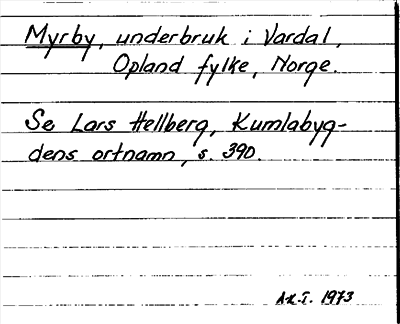 Myrby, underbruk i Vardal,
Opland fylke, Norge.
Se Lars Hellberg, Kumlabyg-
dens ortnamn, s. 390.
A.K.T. 1973